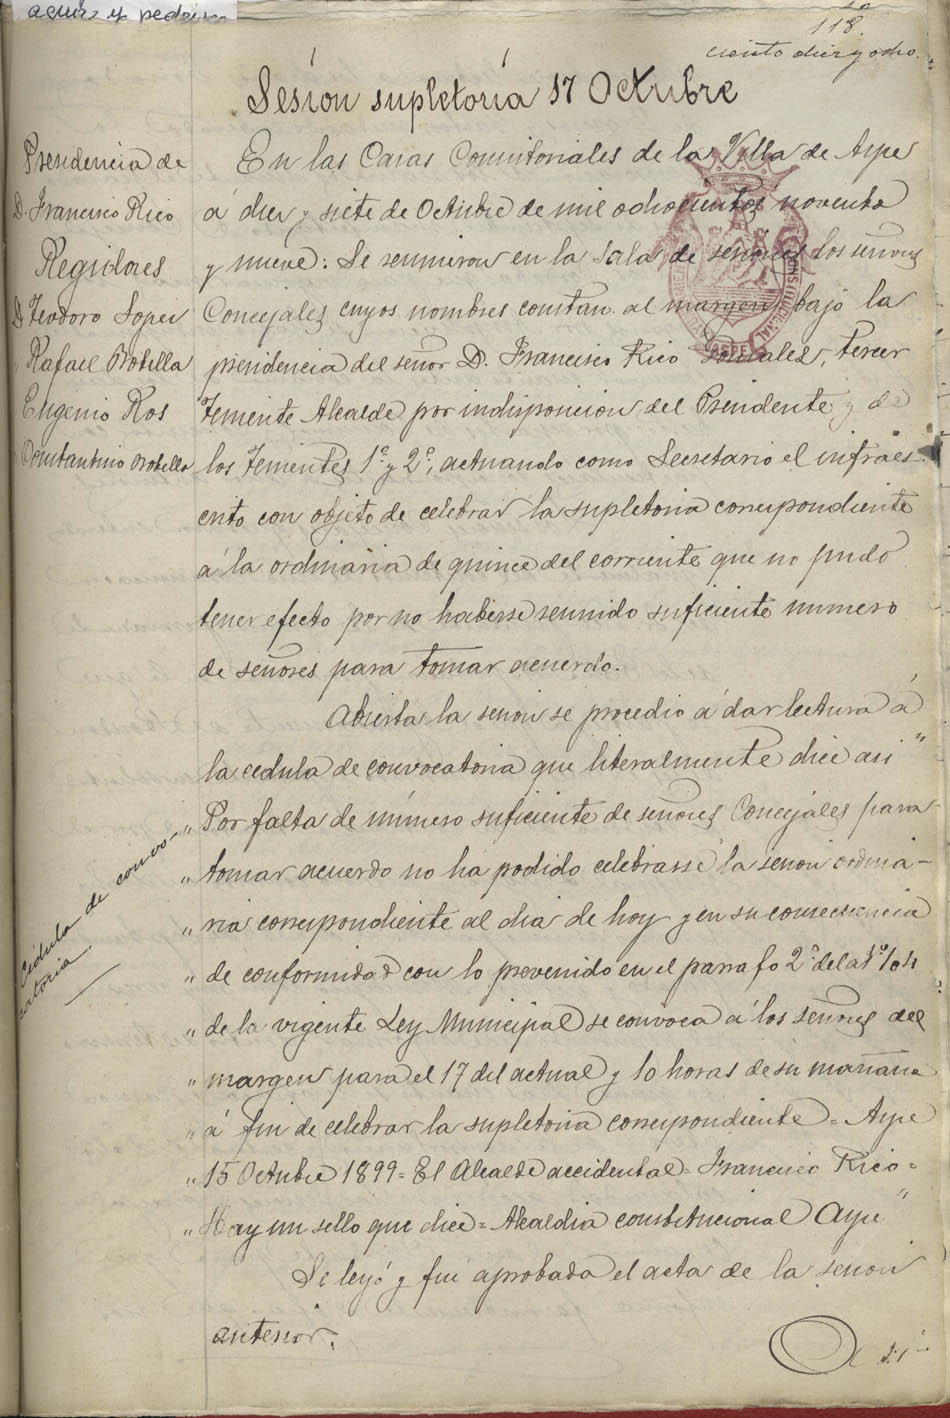 118.
ciento diez y ocho.
Sesion supletoria 17 Octubre
Presidencia de
D. Francisco Rico
Regidores
D. Teodoro Lopez
Rafael Botella
Eugenio Ros
Constantino Botella
En las Casas Consistoriales de la Villa de Aspe
á diez y siete de Octubre de mil ochocientos noventa
y nueve: Se reunieron en la Sala de sesiones los señores
Concejales cuyos nombres constan al margen bajo la
presidencia del señor D. Francisco Rico Gonzalez, tercer
Teniente Alcalde por indisposicion del Presidente y de
los Tenientes 1º y 2º, actuando como Secretario el infraes-
crito con objeto de celebrar la supletoria correspondiente
á la ordinaria de quince del corriente que no pudo
tener efecto por no haberse reunido suficiente numero
de señores para tomar acuerdo.
Abierta la sesion se procedio á dar lectura á
la cedula de convocatoria que literalmente dice asi "
Cédula de convo-
catoria
" Por falta de número suficiente de señores Concejales para
" tomar acuerdo no ha podido celebrarse la sesion ordina-
" ria correspondiente al dia de hoy y en su consecuencia
" de conformidad con lo prevenido en el parrafo 2º del artº 104
" de la vigente Ley Municipal se convoca á los señores del
" margen para el 17 del actual y 10 horas de su mañana
" á fin de celebrar la supletoria correspondiente = Aspe
" 15 Octubre 1899 = El Alcalde accidental = Francisco Rico =
" Hay un sello que dice = Alcaldia constitucional Aspe "
Se leyó y fué aprobada el acta de la sesion
anterior.